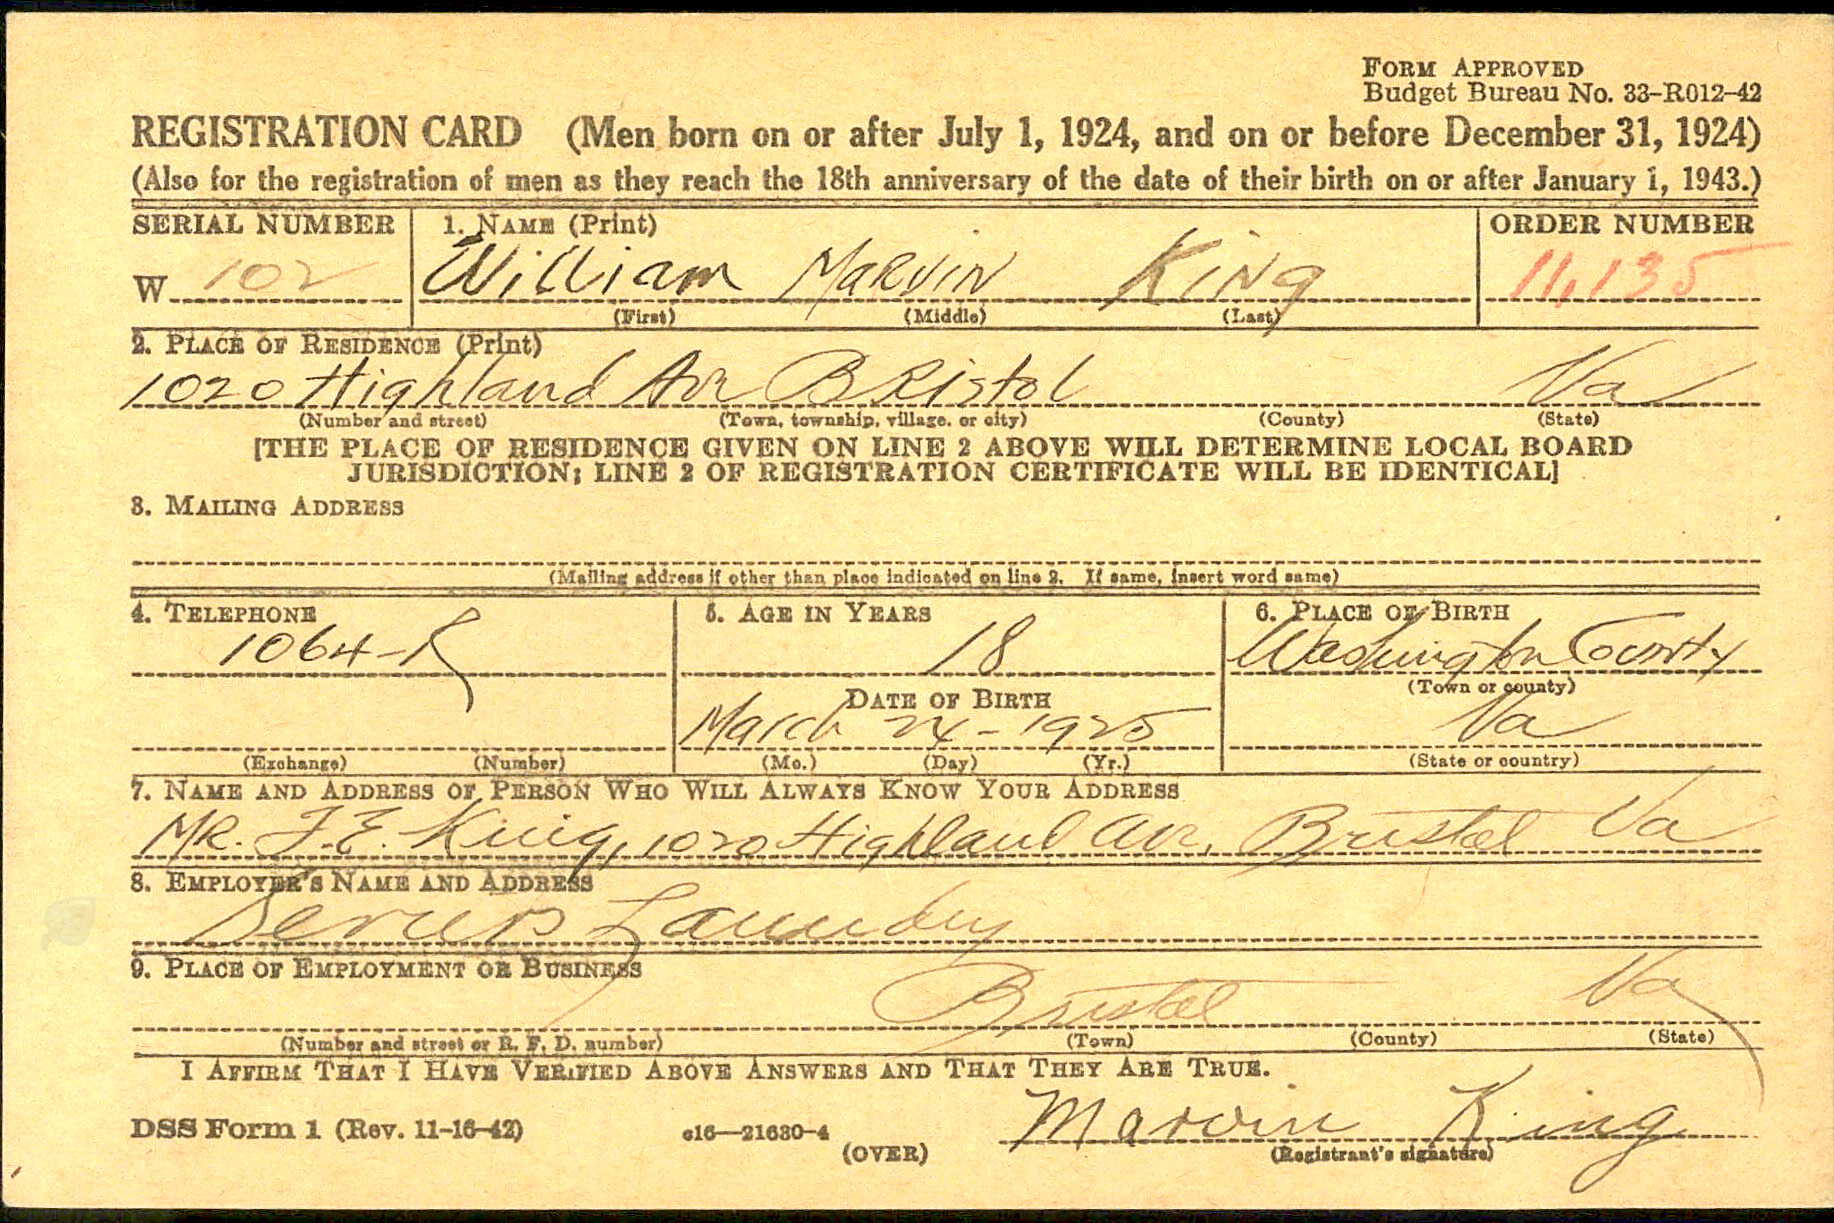 FORM APPROVED
Budget Bureau No. 33-R012-42
REGISTRATION CARD (Men born on or after July 1, 1924, and on or before December 31, 1924)
(Also for the registration of men as they reach the 18th anniversary of the date of their birth on or after January 1, 1943.)
SERIAL NUMBER 1. NAME (Print) ORDER NUMBER
W 102 William MARVIN KiNg 11,135
(First) (Middle) (Last)
2. PLACE OF RESIDENCE (Print)
1020 Highland Ave BRistol Va
(Number and street) (Town, township, village, or city) (County) (State)
[THE PLACE OF RESIDENCE GIVEN ON LINE 2 ABOVE WILL DETERMINE LOCAL BOARD
JURISDICTION; LINE 2 OF REGISTRATION CERTIFICATE WILL BE IDENTICAL]
3. MAILING ADDRESS
(Mailing address if other than place indicated on line 2. If same, insert word same)
4. TELEPHONE 5. AGE IN YEARS 6. PLACE OF BIRTH
1064-R 18 Washington County
(Town or county)
DATE OF BIRTH
March 24-1925 Va
(Exchange) (Number) (Mo.) (Day) (Yr.) (State or country)
7. NAME AND ADDRESS OF PERSON WHO WILL ALWAYS KNOW YOUR ADDRESS
MR. F.E. King, 1020 Highland Ave, Bristol Va
8. EMPLOYER'S NAME AND ADDRESS
Laundry
9. PLACE OF EMPLOYMENT OR BUSINESS
Bristol Va
(Number and street or R. F. D. number) (Town) (County) (State)
I AFFIRM THAT I HAVE VERIFIED ABOVE ANSWERS AND THAT THEY ARE TRUE.
Marvin King
DSS Form 1 (Rev. 11-16-42) c16—21630-4 (OVER) (Registrant's signature)